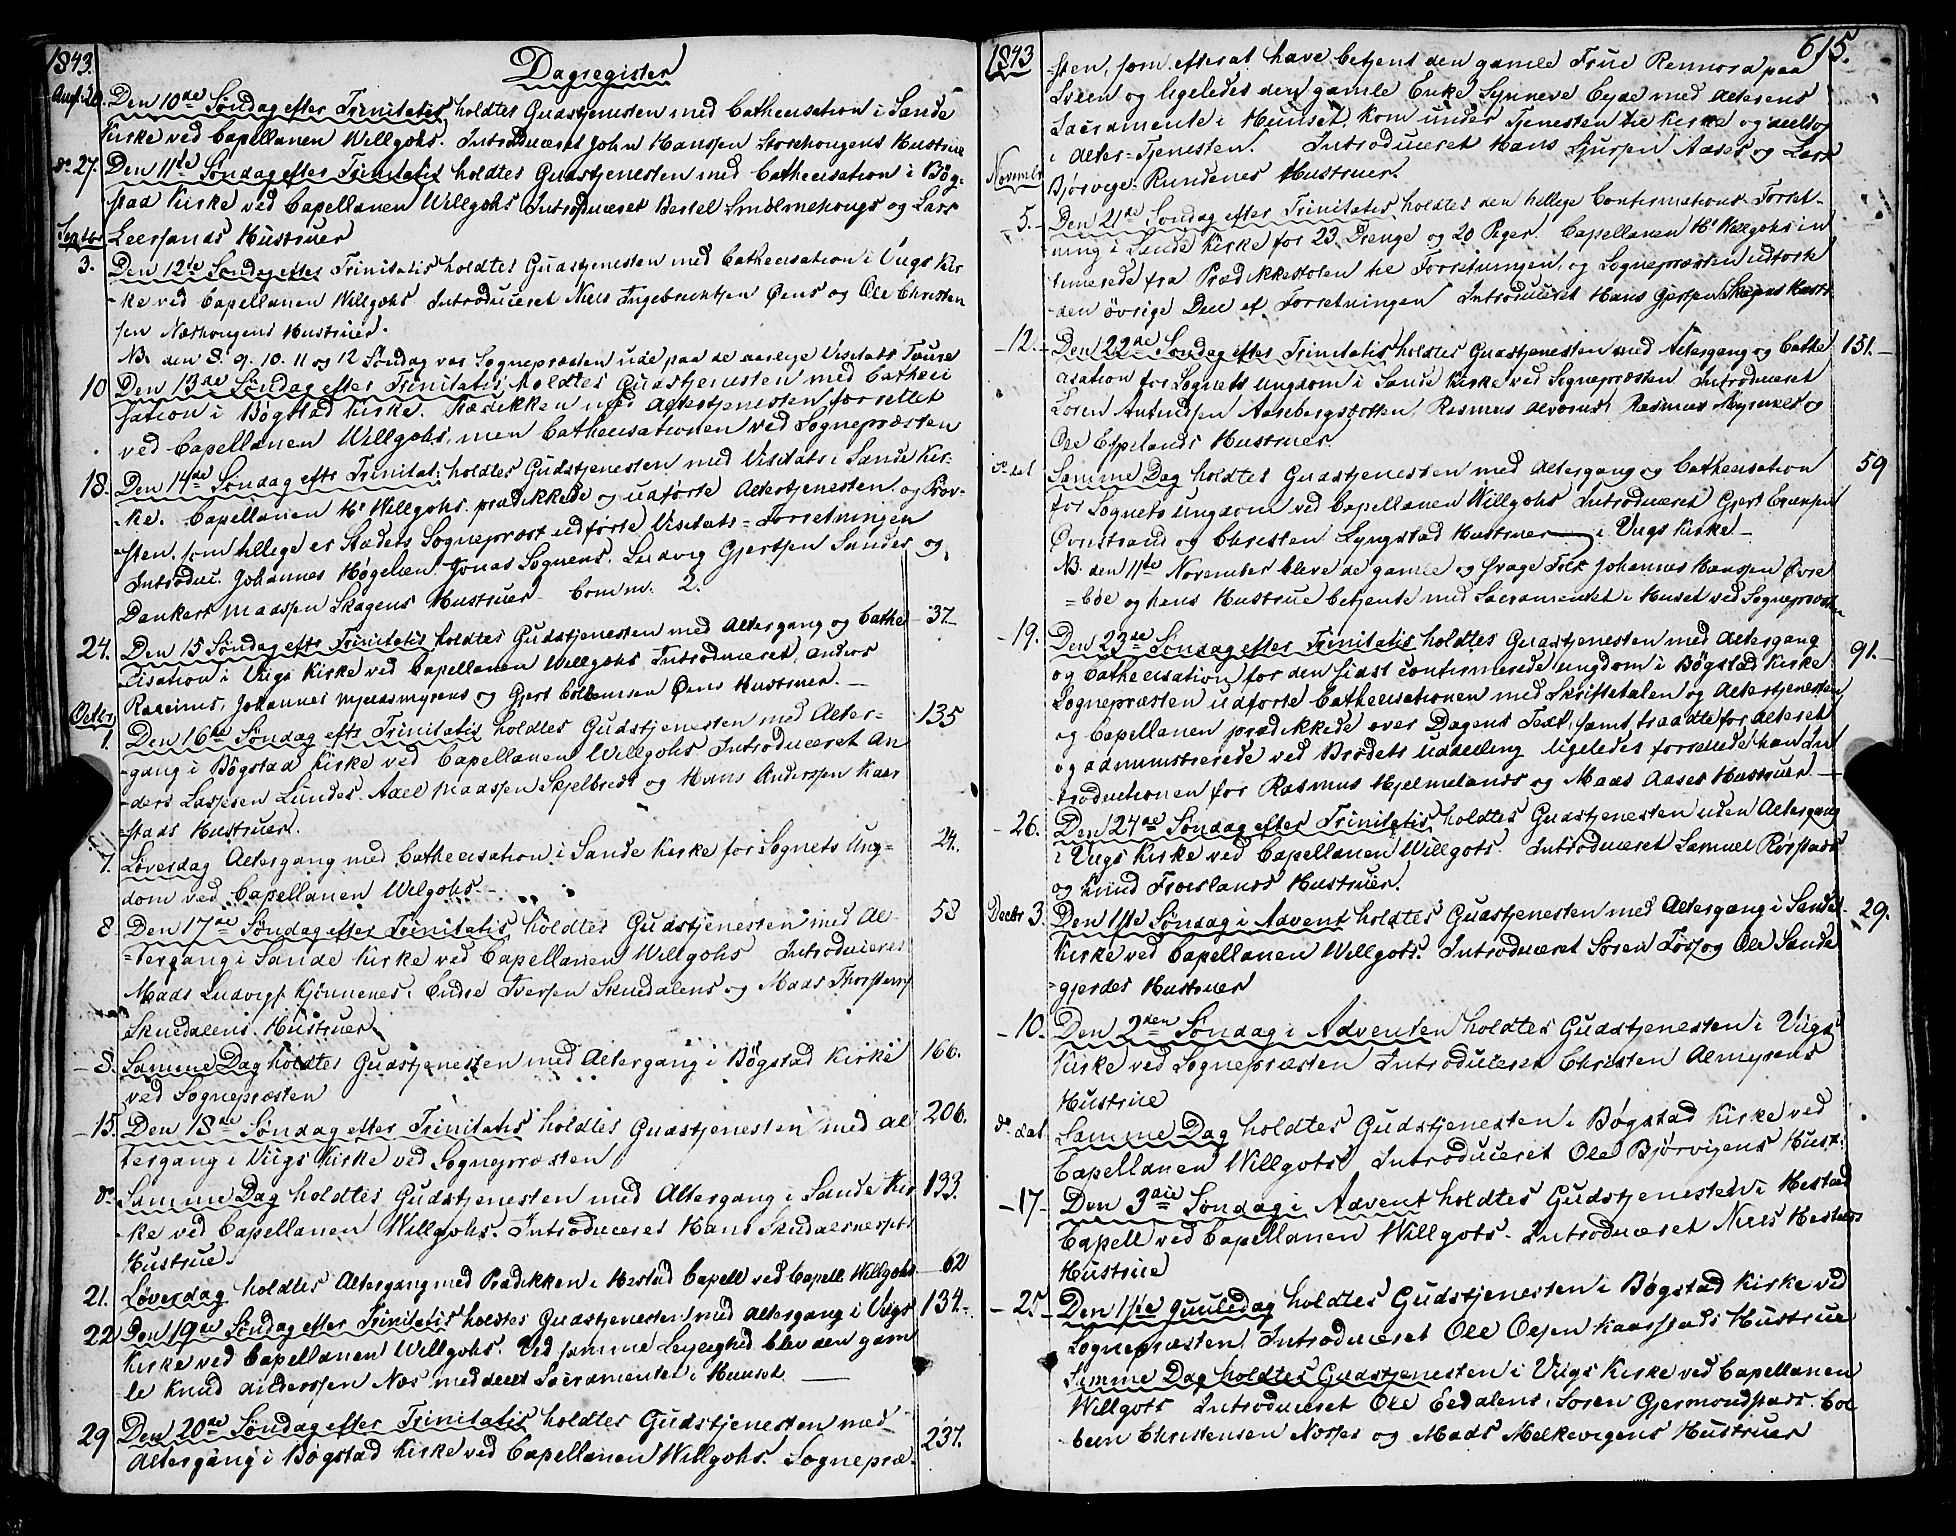 1843.
Dagregister
Aug. 20. Den 10de Søndag efter Trinitatis holdtes Gudstjenesten med Cathecisation i Sande
Kirke ved Capellanen Willgohs. Introduceret John Hanssen Storehougens Hustrue
do 27. Den 11te Søndag efter Trinitatis holdtes Gudstjenesten med Cathecisation i Bøg-
stad Kirke ved Capellanen Willgohs Introduceret Bertel Smolmehougs og Lars
Septbr Leersunds Hustruer
3. Den 12te Søndag efter Trinitatis holdtes Gudstjenesten med Cathecisation i Viigs Kir
ke ved Capellanen Willgohs Introduceret Niels Ingebrechtsen Øens og Ole Christen
sen Næshougens Hustruer.
NB. den 8. 9. 10. 11 og 12 Søndag var Sognepræsten ude paa de aarlige Visitats Toure
10 Den 13de Søndag efter Trinitatis holdtes Gudstjenesten med Catheci
sation i Bøgstad Kirke. Prædikken med Altertjenesten forrettet
ved Capellanen Willgohs, men Cathecisationen ved Sognepræsten
18. Den 14de Søndag eftr Trinitat: holdtes Gudstjenesten med Visitats i Sande Kir-
ke. Capellanen Hr Willgohs prædikkede og udførte Altertjenesten og Prov-
sten, som tillige er Stædets Sognepræst udførte Visitats-Forretningen
Introduc. Johannes Høgelien, Jonas Sognens, Ludvig Gjertsen Sandes og
Dankert Madssen Skagens Hustruer Comm. 2.
24. Den 15 Søndag eftr Trinitatis holdtes Gudstjenesten med Altergang og Cathe 37
cisation i Viigs Kirke ved Capellanen Willgohs Introduceret, Anders
Johannes Myens og Gjert Colbensen Øens Hustruer.
Octbr
1. Den 16de Søndag eftr Trinitatis holdtes Gudstjenesten med Alter- 135
gang i Bøgstad Kirke ved Capellanen Willgohs Introduceret An
ders Lassesen Lundes. Axel Madssen Skjelbreds og Hans Anderssen Kaar
stads Hustruer.
7. Løverdag Altergang med Cathecisation i Sande Kirke for Sognets Ung- 24.
dom ved Capellanen Wilgohs.
8 Den 17de Søndag efter Trinitatis holdtes Gudstjenesten med Al- 53
tergang i Sande Kirke ved Capellanen Willgohs Introduceret
Mads Ludvigs. Kjønnenes, Endre Iversen Skuedalens og Mads Thorstens
Skuedalens Hustruer
8. Samme Dag holdtes Gudstjenesten med Altergang i Bøgstad Kirke 166.
ved Sognepræsten
15. Den 18de Søndag efter Trinitatis holdtes Gudstjenesten med Al 206.
tergang i Viigs Kirke ved Sognepræsten
do Samme Dag holdtes Gudstjenesten med Altergang i Sande Kir 133.
ke ved Capellanen Willgohs. Introduceret Hans Skudalsnessets
Hustrue.
21. Løverdag holdtes Altergang med Prædikken i Hestad Capell ved Capell. Willgohs 62
22 Den 19de Søndag efter Trinitatis holdtes Gudstjenesten med Altergang i Viigs 134.
Kirke ved Capellanen Willgohs. Ved samme Leylighed blev den gam
le Knud Anderssen Næs meddeelt Sacramentet i Huuset.
29 Den 20de Søndag efter Trinitatis holdtes Gudstjenesten med
Altergang i Bøgstad Kirke ved Capellanen Willgohs. Sognepræ- 237.
1843
615.
sten, som efterat have betjent den gamle Frue Rennord paa
Sveen og ligeledes den gamle Enke Synneve Eyde med Alterens
Sacramente i Huuset, kom under Tjenesten til Kirke og deeltog
i Alter-Tjenesten. Introduceret Hans Sjursen Aases og Lars
Novembr Bjørvigs-Rundenes Hustruer.
5. Den 21de Søndag efter Trinitatis holdtes den hellige Confirmations-Forret-
ning i Sande Kirke for 23 Drenge og 20 Piger. Capellanen Hr Willgohs in
timerede fra Prædikkestolen til Forretningen, og Sognepræsten udførte
den øvrige Deel af Forretningen Introduceret Hans Gjertsen Skagens Hustr
12. Den 22de Søndag efter Trinitatis holdtes Gudstjenesten med Altergang og Cathe 151.
cisation for Sognets Ungdom i Sande Kirke ved Sognepræsten Introduceret
Søren Antendsen Aasebergsgotten, Rasmus Rasmus Myrenes og
Ole Espelands Hustruer
do dat Samme Dag holdtes Gudstjenesten med Altergang og Cathecisation 59
for Sognets Ungdom ved Capellanen Willgohs Introduceret Gjert Ernssen
Øvrstrand og Christen Lyngstad Hustruer i Viigs Kirke
NB. den 11te November bleve de gamle og svage Folk Johannes Hanssen Øvre
bøe og hans Hustrue betjente med Sacramentet i Huset ved Sognepræsten
19. Den 23de Søndag efter Trinitatis holdtes Gudstjenesten med Altergang
og Cathecisation for den sidst confirmerede Ungdom i Bøgstad Kirke 91.
Sognepræsten udførte Cathecisationen med Skriftetalen og Altertjenesten
og Capellanen prædikkede over Dagens Text, samt traadte for Alteret
og administrerede ved Brødets Uddeeling ligeledes forrettede han In
troductionen for Rasmus Hjelmelands og Mads Aases Hustruer
26. Den 24de Søndag efter Trinitatis holdtes Gudstjenesten uden Altergang
i Viigs Kirke ved Capellanen Willgots. Introduceret Samuel Rørstads
og Knud Froeslands Hustruer.
Decbr 3. Den 1ste Søndag i Advent holdtes Gudstjenesten med Altergang i Sande 29.
Kirke ved Capellanen Willgots. Introduceret Søren Foss og Ole Sande
gjerdes Hustruer
10. Den 2den Søndag i Adventen holdtes Gudstjenesten i Viigs
Kirke ved Sognepræsten Introduceret Christen Almyrens
Hustrue
do dat Samme Dag holdtes Gudstjenesten i Bøgstad Kirke ved
Capellanen Willgots. Introduceret Ole Bjørvigens Hust:
17 Den 3die Søndag i Advent holdtes Gudstjenesten i Hestad
Capell ved Capellanen Willgots. Introduceret Niels Hestads
Hustrue
25 Den 1ste Juuledag holdtes Gudstjenesten i Bøgstad Kirke ved
Sognepræsten Introduceret Ole Olsen Kaarstads Hustrue
Samme Dag holdtes Gudstjenesten i Viigs Kirke ved Capellanen
Willgots Introduceret Ole Eedalens, Søren Gjermondstads. Col
been Christensen Næsses og Mads Melkevigens Hustruer